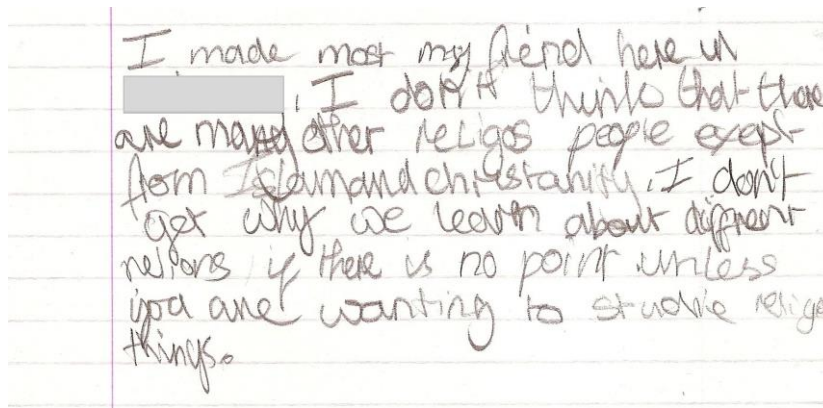 I made most my fiend here in
. I don't think that there
are many other religos people exept
from Islam and christanity. I don't
get why we learn about different
relions if there is no point unless
you are wanting to studie religo
things.